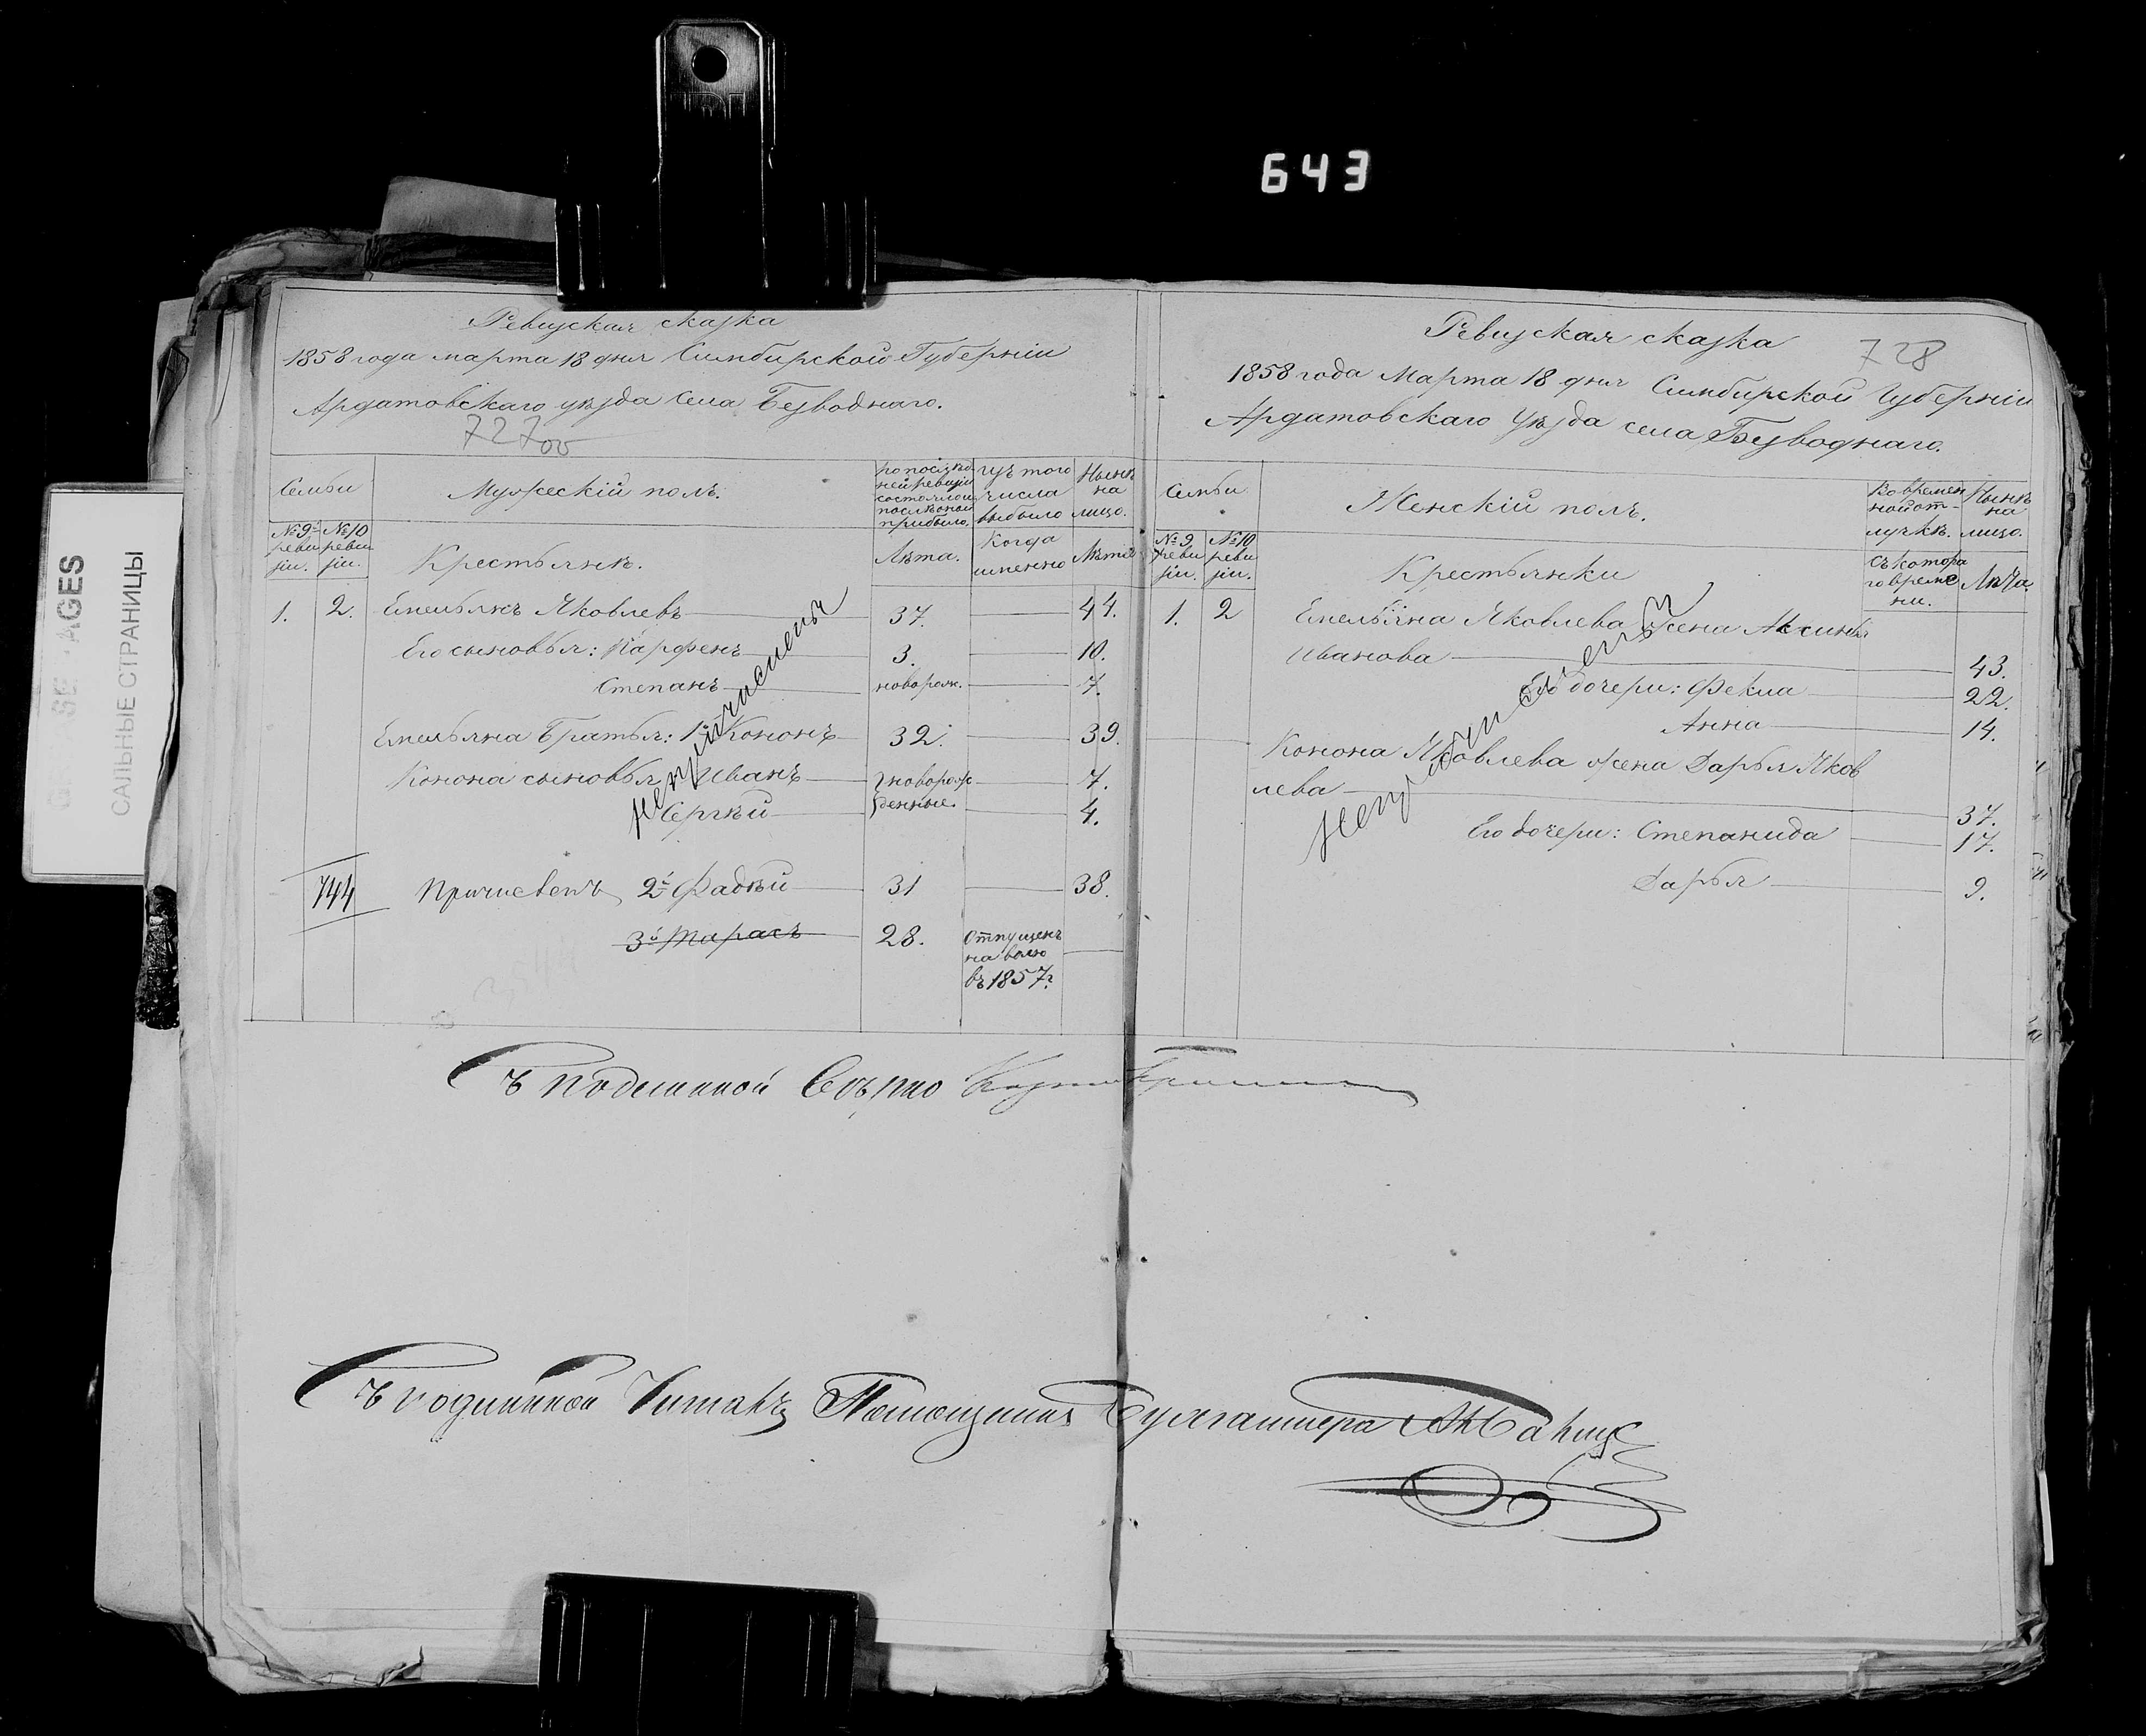 643
САЛЬНЫЕ СТРАНИЦЫ
AGES
Ревизская сказка
1858 года марта 18 дня Симбирской Губерніи
Ардатовскаго уѣзда села Безводнаго.
727 об
Семьи
Мужескій полъ.
по послѣд
ней ревизіи
состояло и
послѣ оной
прибыло.
изъ того
числа
выбыло
Нынѣ
на
лицо.
№ 9й
реви
зіи.
№ 10
реви
зіи.
Крестьянѣ.
Лѣта.
Когда
именно
Лѣта
1. 2. Емельянъ Яковлевъ 37. 44.
Его сыновья: Парфенъ 3. 10.
Степанъ новорож. 7.
Емельяна Братья: 1й Кононъ 32. 39.
Конона сыновья Иванъ новорож 7.
Сергѣй денные. 4.
непричисленъ
744 Причисленъ 2й Фадѣй 31 38.
3й Тарасъ 28. Отпущенъ
на волю
въ 1857г.
Ревизская сказка
728
1858 года Марта 18 дня Симбирской Губерніи
Ардатовскаго Уѣзда села Безводнаго.
Семьи
Женскій полъ.
Во времен
ной от-
лучкѣ.
Нынѣ
на
лицо.
№ 9
реви
зіи.
№ 10
реви
зіи.
Крестьянки
Съ котора
го време
ни.
Лѣта.
1. 2 Емельяна Яковлева жена Аксинья
Иванова 43.
Его дочери: Фекла 22.
Анна 14.
Конона Яковлева жена Дарья Яков
лева 37.
Его дочери: Степанида 17.
Дарья 9.
Съ подлинной вѣрно
Съ подлинной Читалъ Помощникъ Бухгалтера